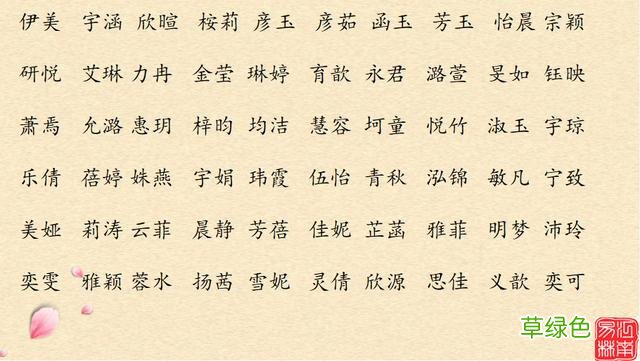 伊美 宇涵 欣暄 桉莉 彦玉 彦茹 函玉 芳玉 怡晨 宗颖
研悦 艾琳 力冉 金莹 琳婷 育歆 永君 潞萱 旻如 钰映
萧焉 允潞 惠玥 梓昀 均洁 慧容 坷童 悦竹 淑玉 宇琼
乐倩 蓓婷 姝燕 宇娟 玮霞 伍怡 青秋 泓锦 敏凡 宁致
美娅 莉涛 云菲 晨静 芳蓓 佳妮 芷菡 雅菲 明梦 沛玲
奕雯 雅颖 蓉水 扬茜 雪妮 灵倩 欣源 思佳 义歆 奕可
草绿色